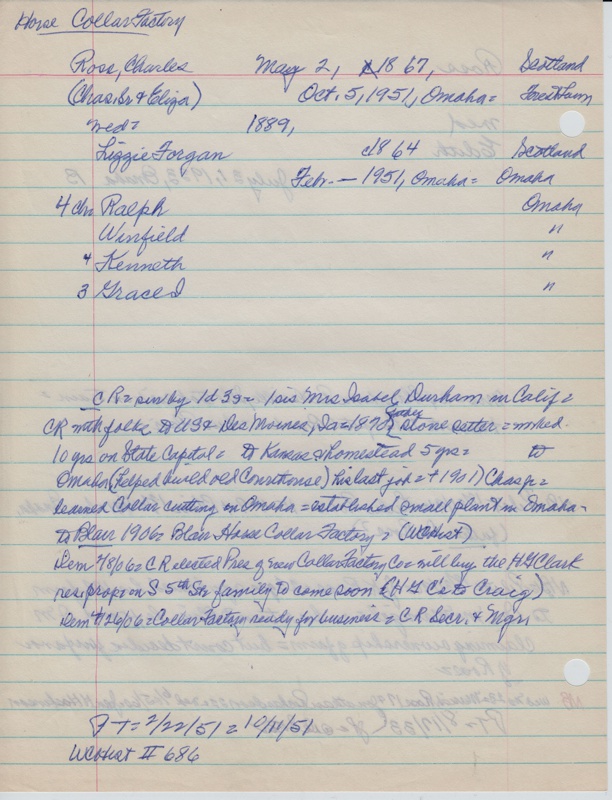 Horse Collar Factory
Rose, Charles May 2, 1867, Scotland
(Chas. Sr & Eliza) Oct. 5, 1951, Omaha = Forest Lawn
med = 1889,
Lizzie Forgan c1864 Scotland
Febr. — 1951, Omaha = Omaha
4 chn Ralph Omaha
Winfield "
4 Kenneth "
3 Grace I "
CR = surv by 1d 3s = 1 sis Mrs Isabel Durham in Calif =
CR with folks to US & Des Moines, Ia = 1870 (father stone cutter = worked
10 yrs on State Capitol = to Kansas & homestead 5 yrs = to
Omaha (helped build old Courthouse) his last job = +1901) Chas Jr =
learned Collar cutting in Omaha = established small plant in Omaha =
to Blair 1906 = Blair Horse Collar Factory = (WCHist)
Dem 4/8/06 = CR elected Pres of new Collar Factory Co = will buy the HG Clark
res prop on S 5th St = family to come soon = (H G C's to Craig)
Dem 4/26/06 = Collar Factory ready for business = CR Secr. & Mgr,
PT = 2/22/51 = 10/11/51
WCHist II 686